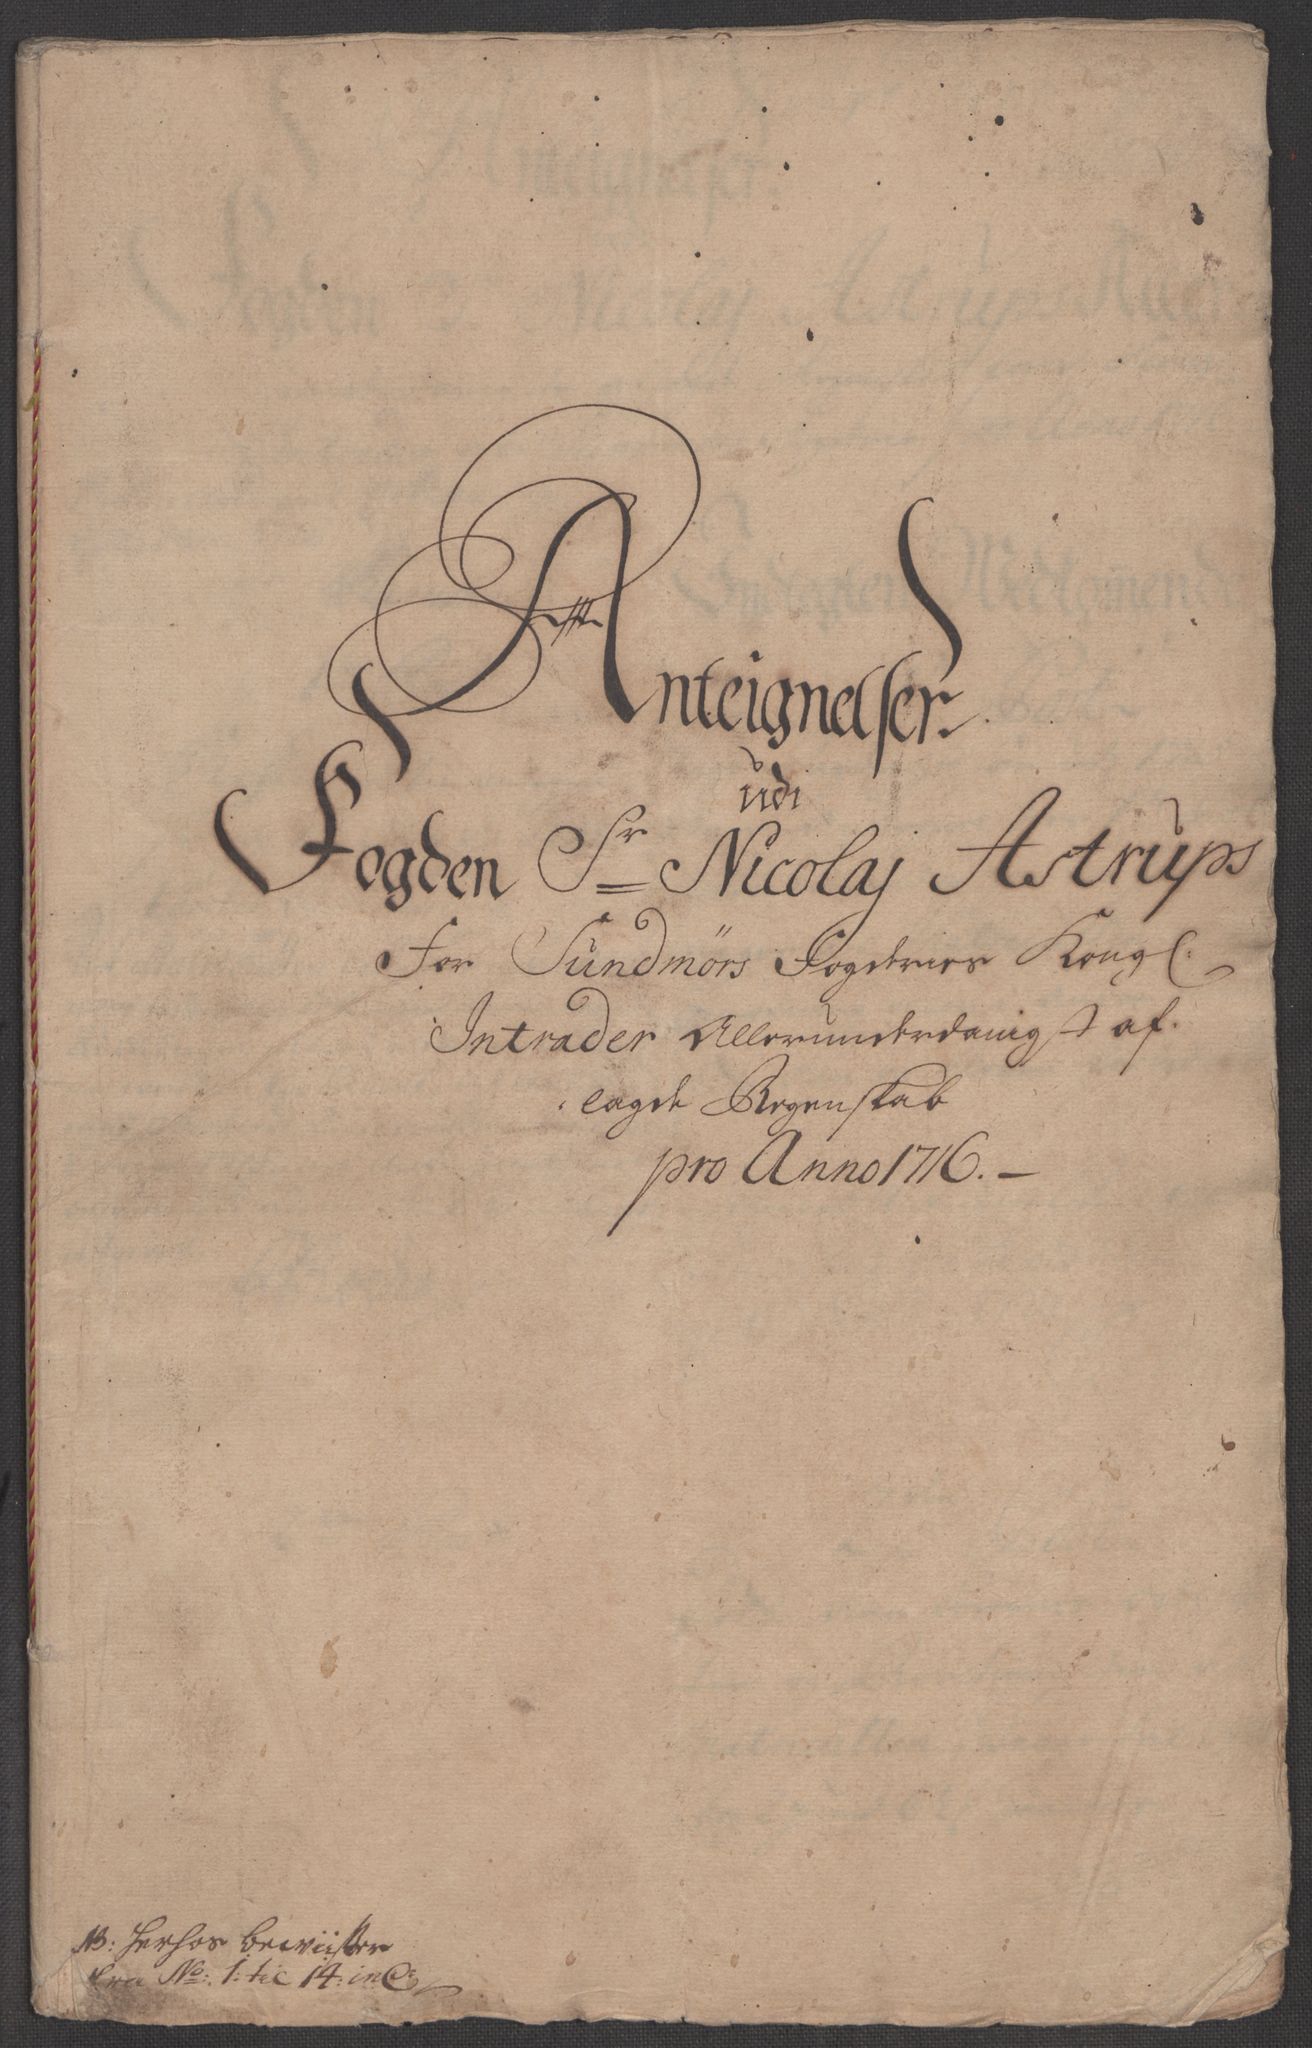 Anteignelser
udi
Fogden Sr Nicolaj Astrups
For Sundmörs Fogderies Kongl:
Intrader Allerunderdanigst af-
lagde Regenskab
pro Anno 1716. —
NB: herhos bewiister
fra No: 1: til 14: incl: